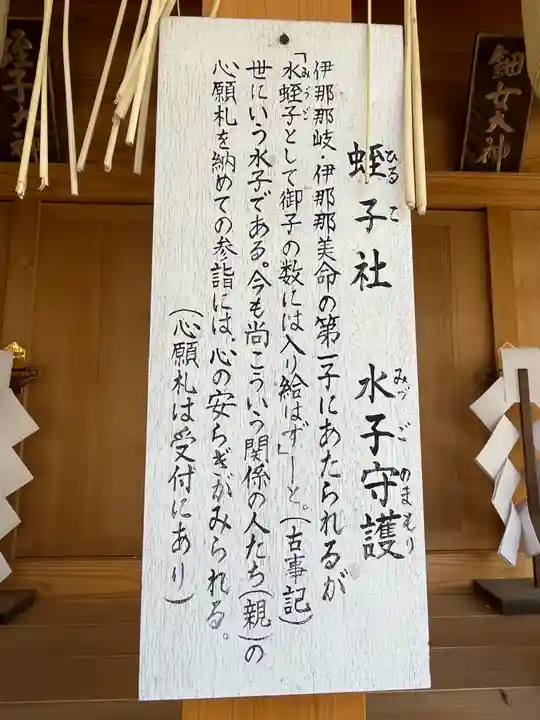 鈿女大神
蛭子社 水子守護
ひるこ
みづご
のまもり
伊那那岐・伊那那美命の第一子にあたられるが
「水蛭子として御子の数には入り給はず」―と。(古事記)
みづご
世にいう水子である。今も尚こういう関係の人たち(親)の
心願札を納めての参詣には、心の安らぎがみられる。
(心願札は受付にあり)
蛭子大神